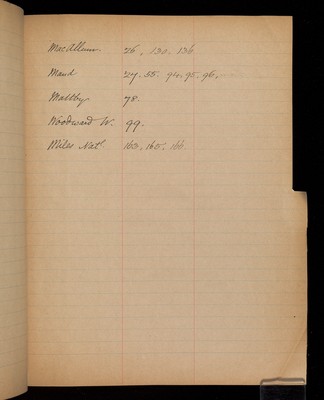 MacAllum. 26, 130. 136
Maud 27. 55. 94. 95. 96.
Maltby 78.
Woodward W. 99.
Miles Natl. 163. 165. 166.